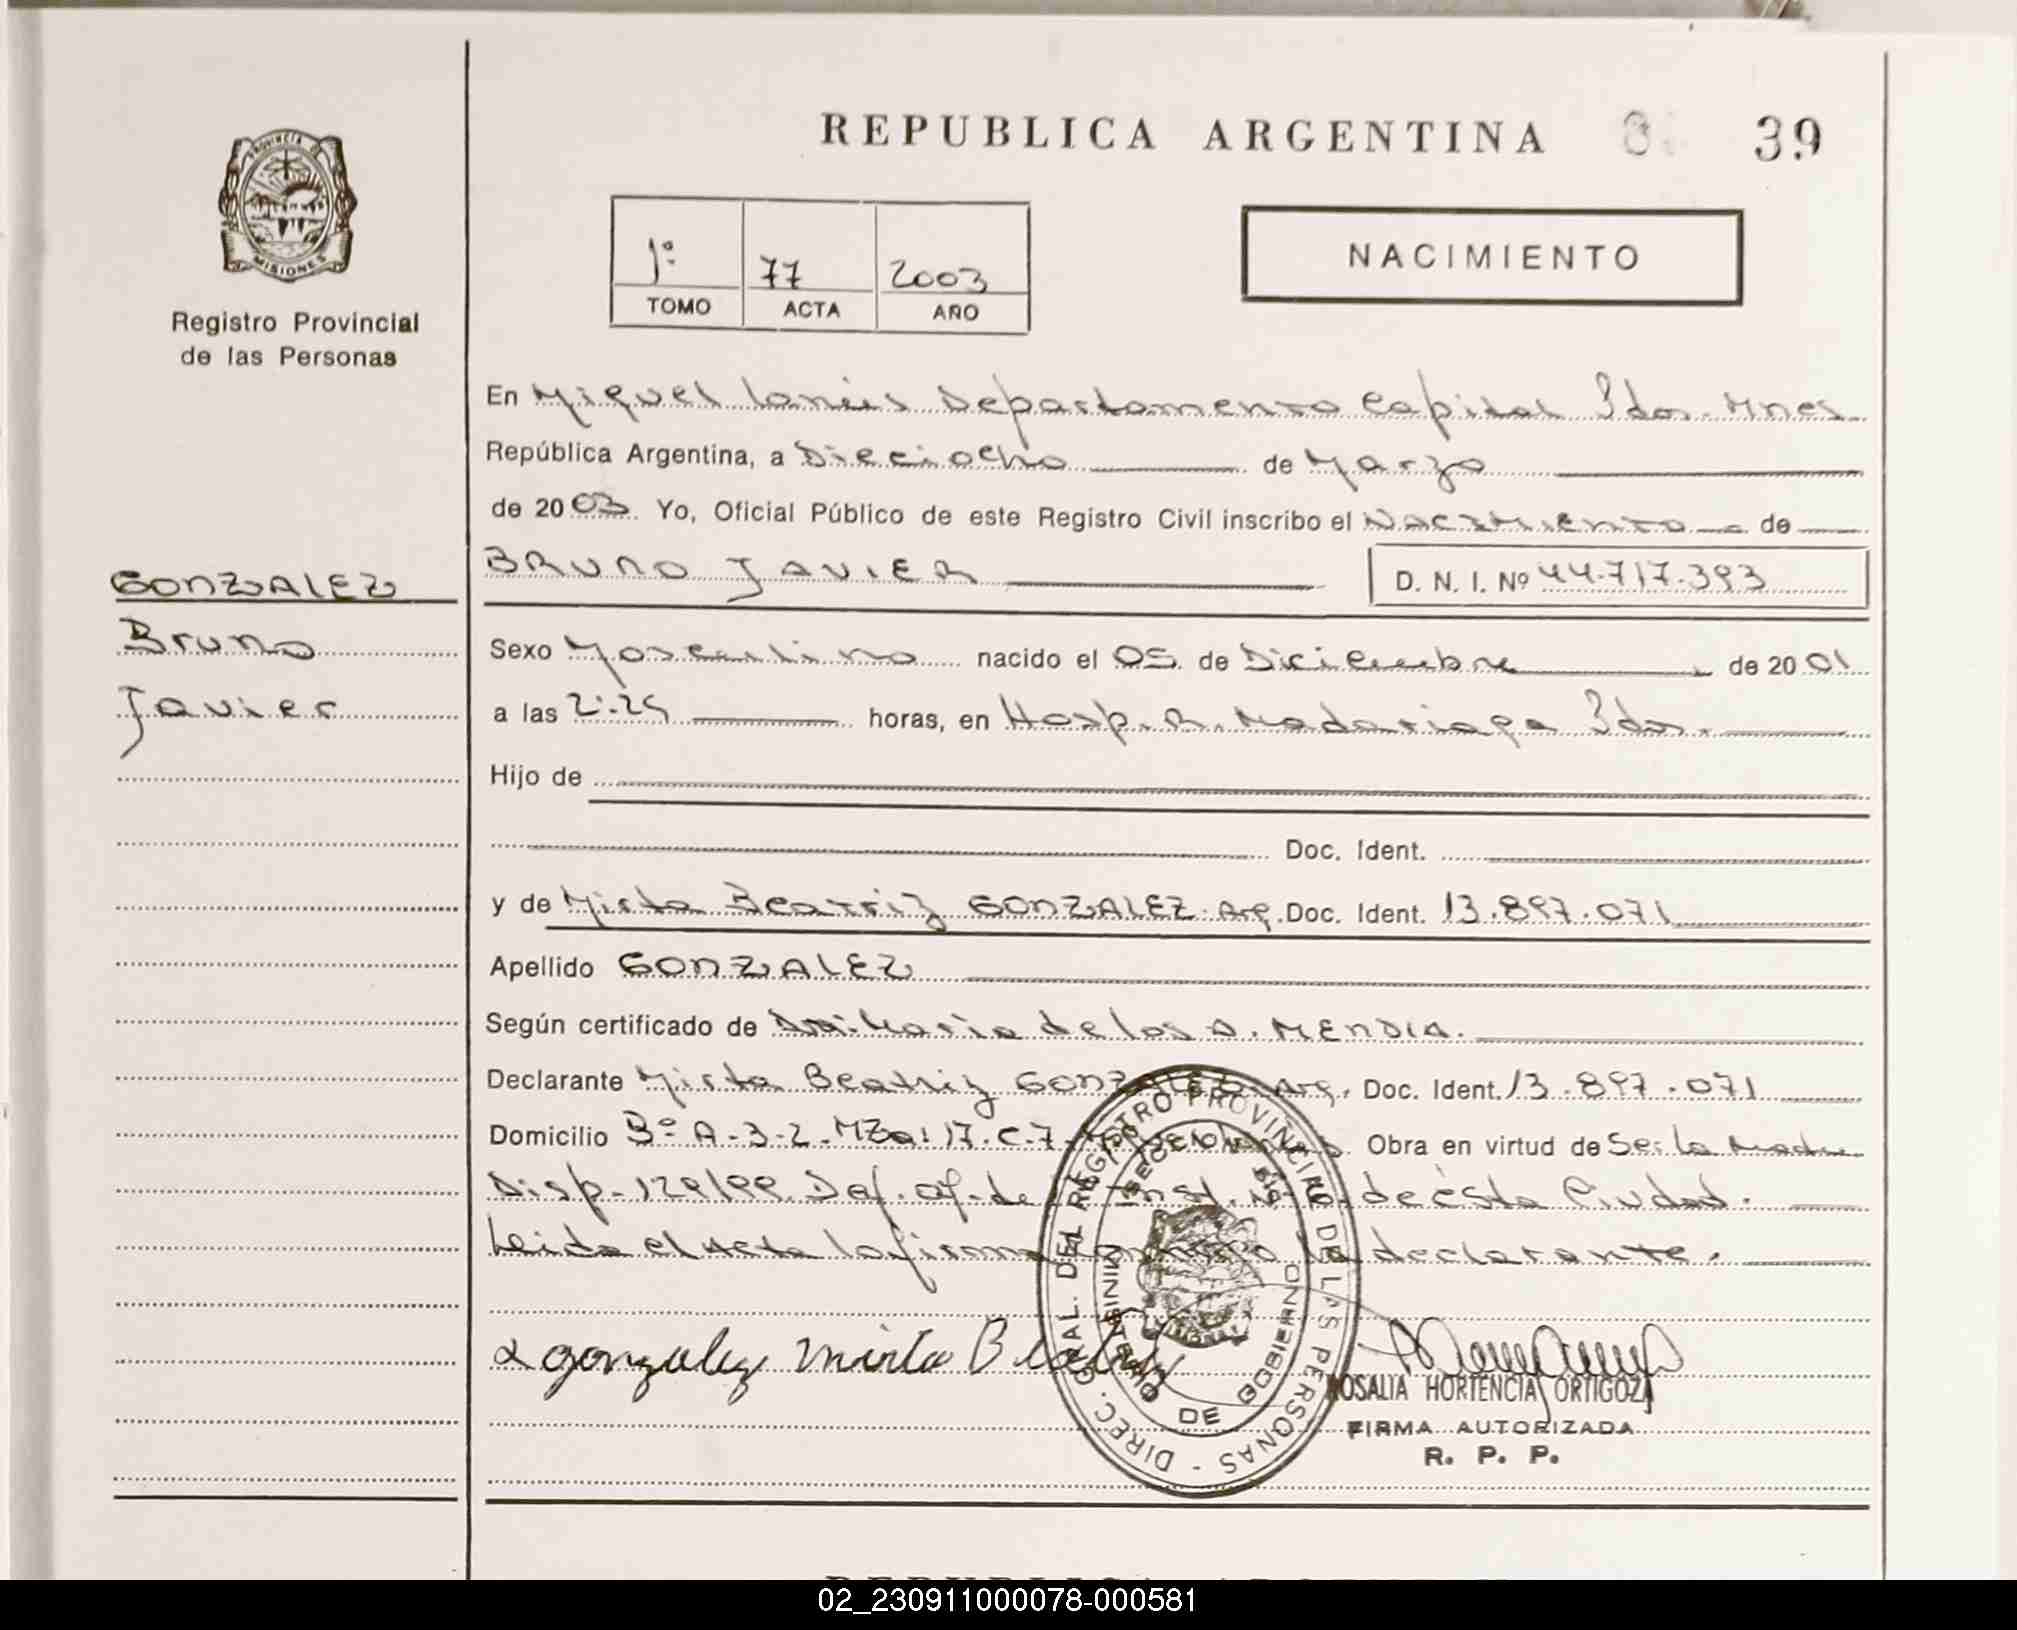 REPUBLICA ARGENTINA 39
PROVINCIA DE
MISIONES
Registro Provincial
de las Personas
1º 77 2003
TOMO ACTA AÑO
NACIMIENTO
En Miguel Lanús Departamento Capital Pdas. Mnes.
República Argentina, a Dieciocho de Marzo
de 2003 Yo, Oficial Público de este Registro Civil inscribo el Nacimiento de
BRUNO JAVIER D. N. I. Nº 44.717.393
GONZALEZ
Bruno
Javier
Sexo Masculino nacido el 05 de Diciembre de 2001
a las 2:25 horas, en Hosp. R. Madariaga Pdas.
Hijo de
Doc. Ident.
y de Mirta Beatriz GONZALEZ. Arg. Doc. Ident. 13.897.071
Apellido GONZALEZ
Según certificado de Maria de los A. MENDIA.
Declarante Mirta Beatriz GONZALEZ Arg. Doc. Ident. 13.897.071
Domicilio Bº A-3-2. MZa: 17. C.7 Obra en virtud de Ser la Madre
Disp. Def. of. de Inst. de ésta Ciudad.
Leida el Acta la firma la declarante.
gonzalez Mirta Beatriz
DIREC. GRAL. DEL REGISTRO PROVINCIAL DE LAS PERSONAS
MINISTERIO DE GOBIERNO
ROSALIA HORTENCIA ORTIGOZA
FIRMA AUTORIZADA
R. P. P.
02_230911000078-000581